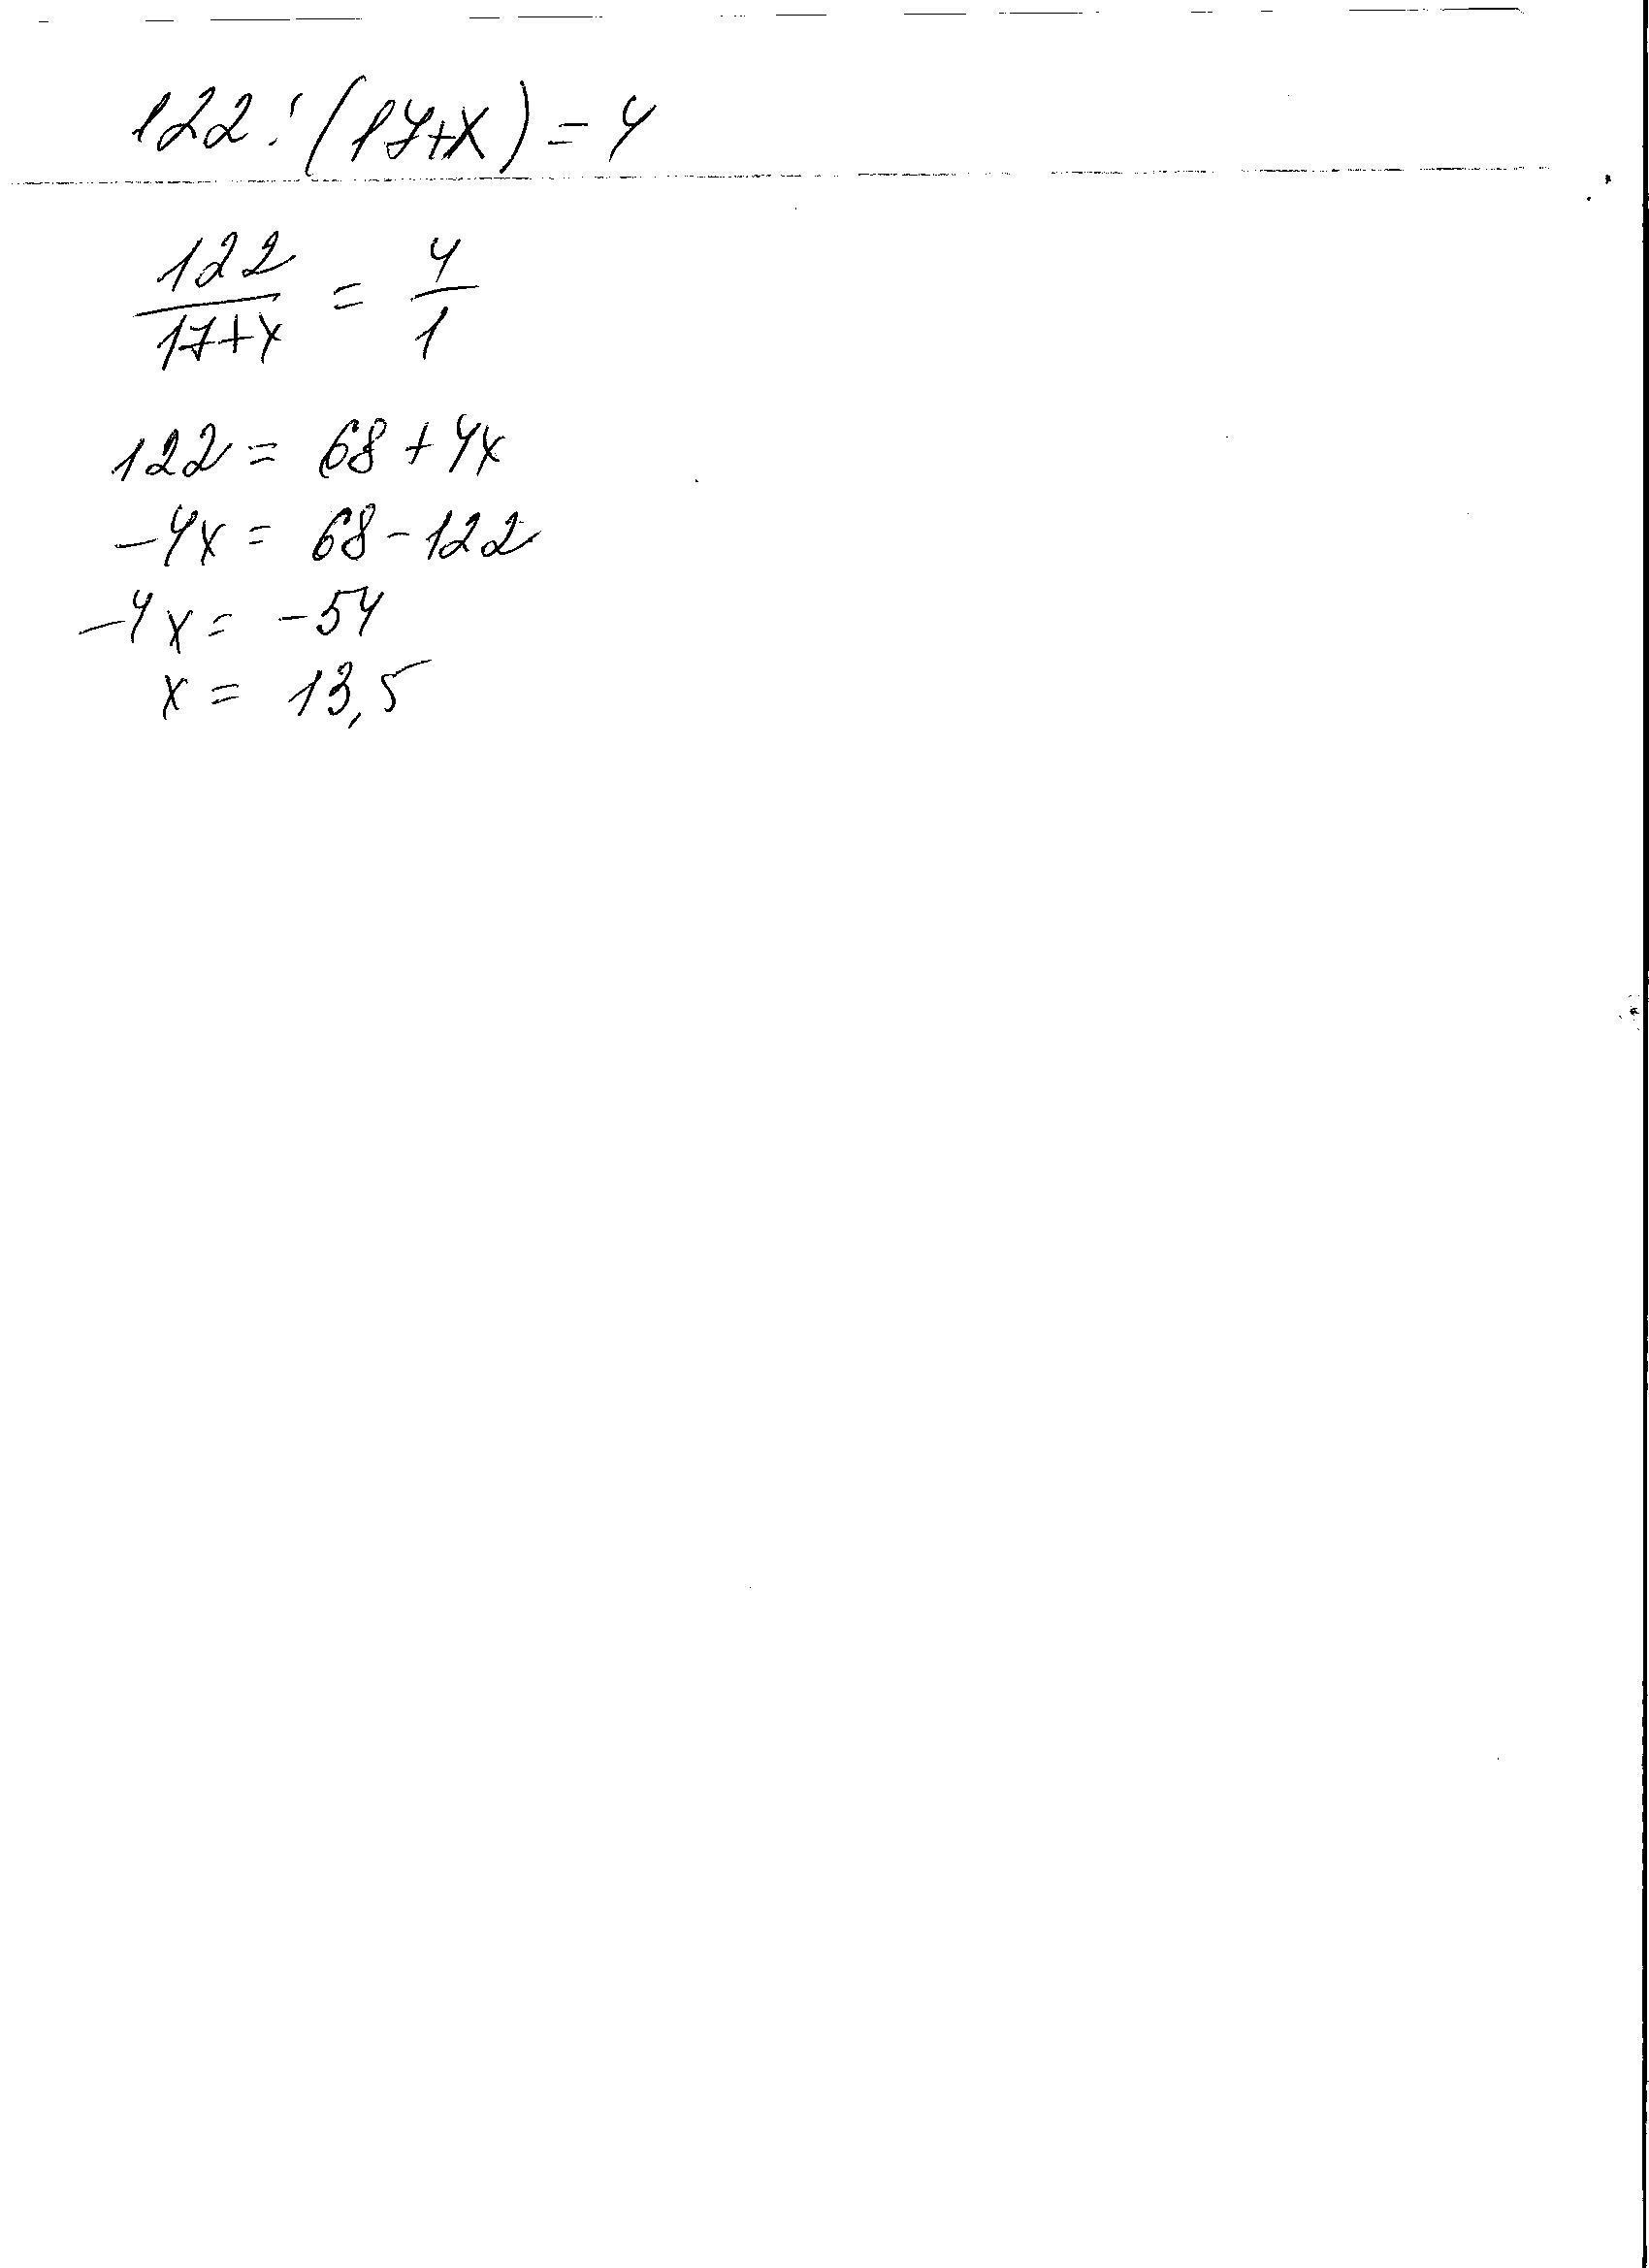 122:(17+x)=4
122/17+x = 4/1
122 = 68 + 4x
-4x = 68 - 122
-4x = -54
x = 13,5